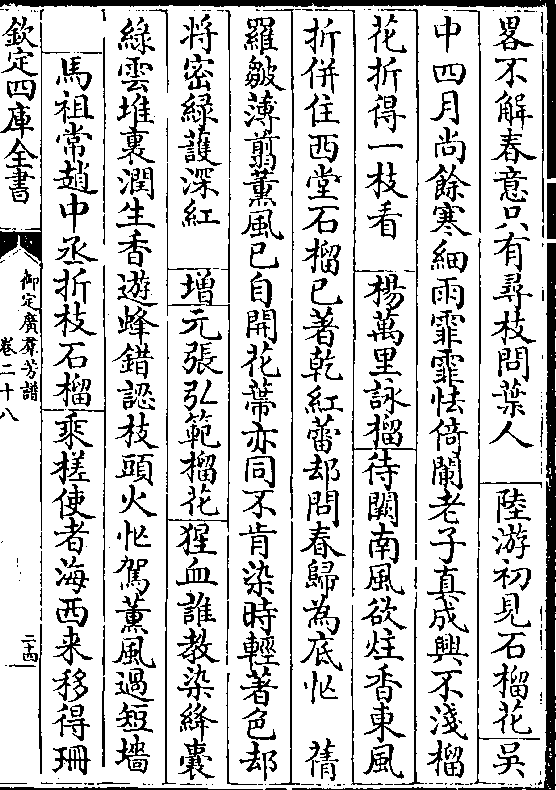 畧不解春意只有尋枝問葉人　陸游初見石榴花吳
中四月尚餘寒細雨霏霏怯倚闌老子真成興不淺榴
花折得一枝看　楊萬里詠榴待闕南風欲炷香東風
折併住西堂石榴已著乾紅蕾却問春歸為底忙　蒨
羅皺薄翦薰風已自開花蔕亦同不肯染時輕著色却
將密綠護深紅　增元張弘範榴花猩血誰教染絳囊
綠雲堆裏潤生香遊蜂錯認枝頭火忙駕薰風過短墻
馬祖常趙中丞折枝石榴乘槎使者海西来移得珊
欽定四庫全書
御定廣羣芳譜
卷二十八
二十四